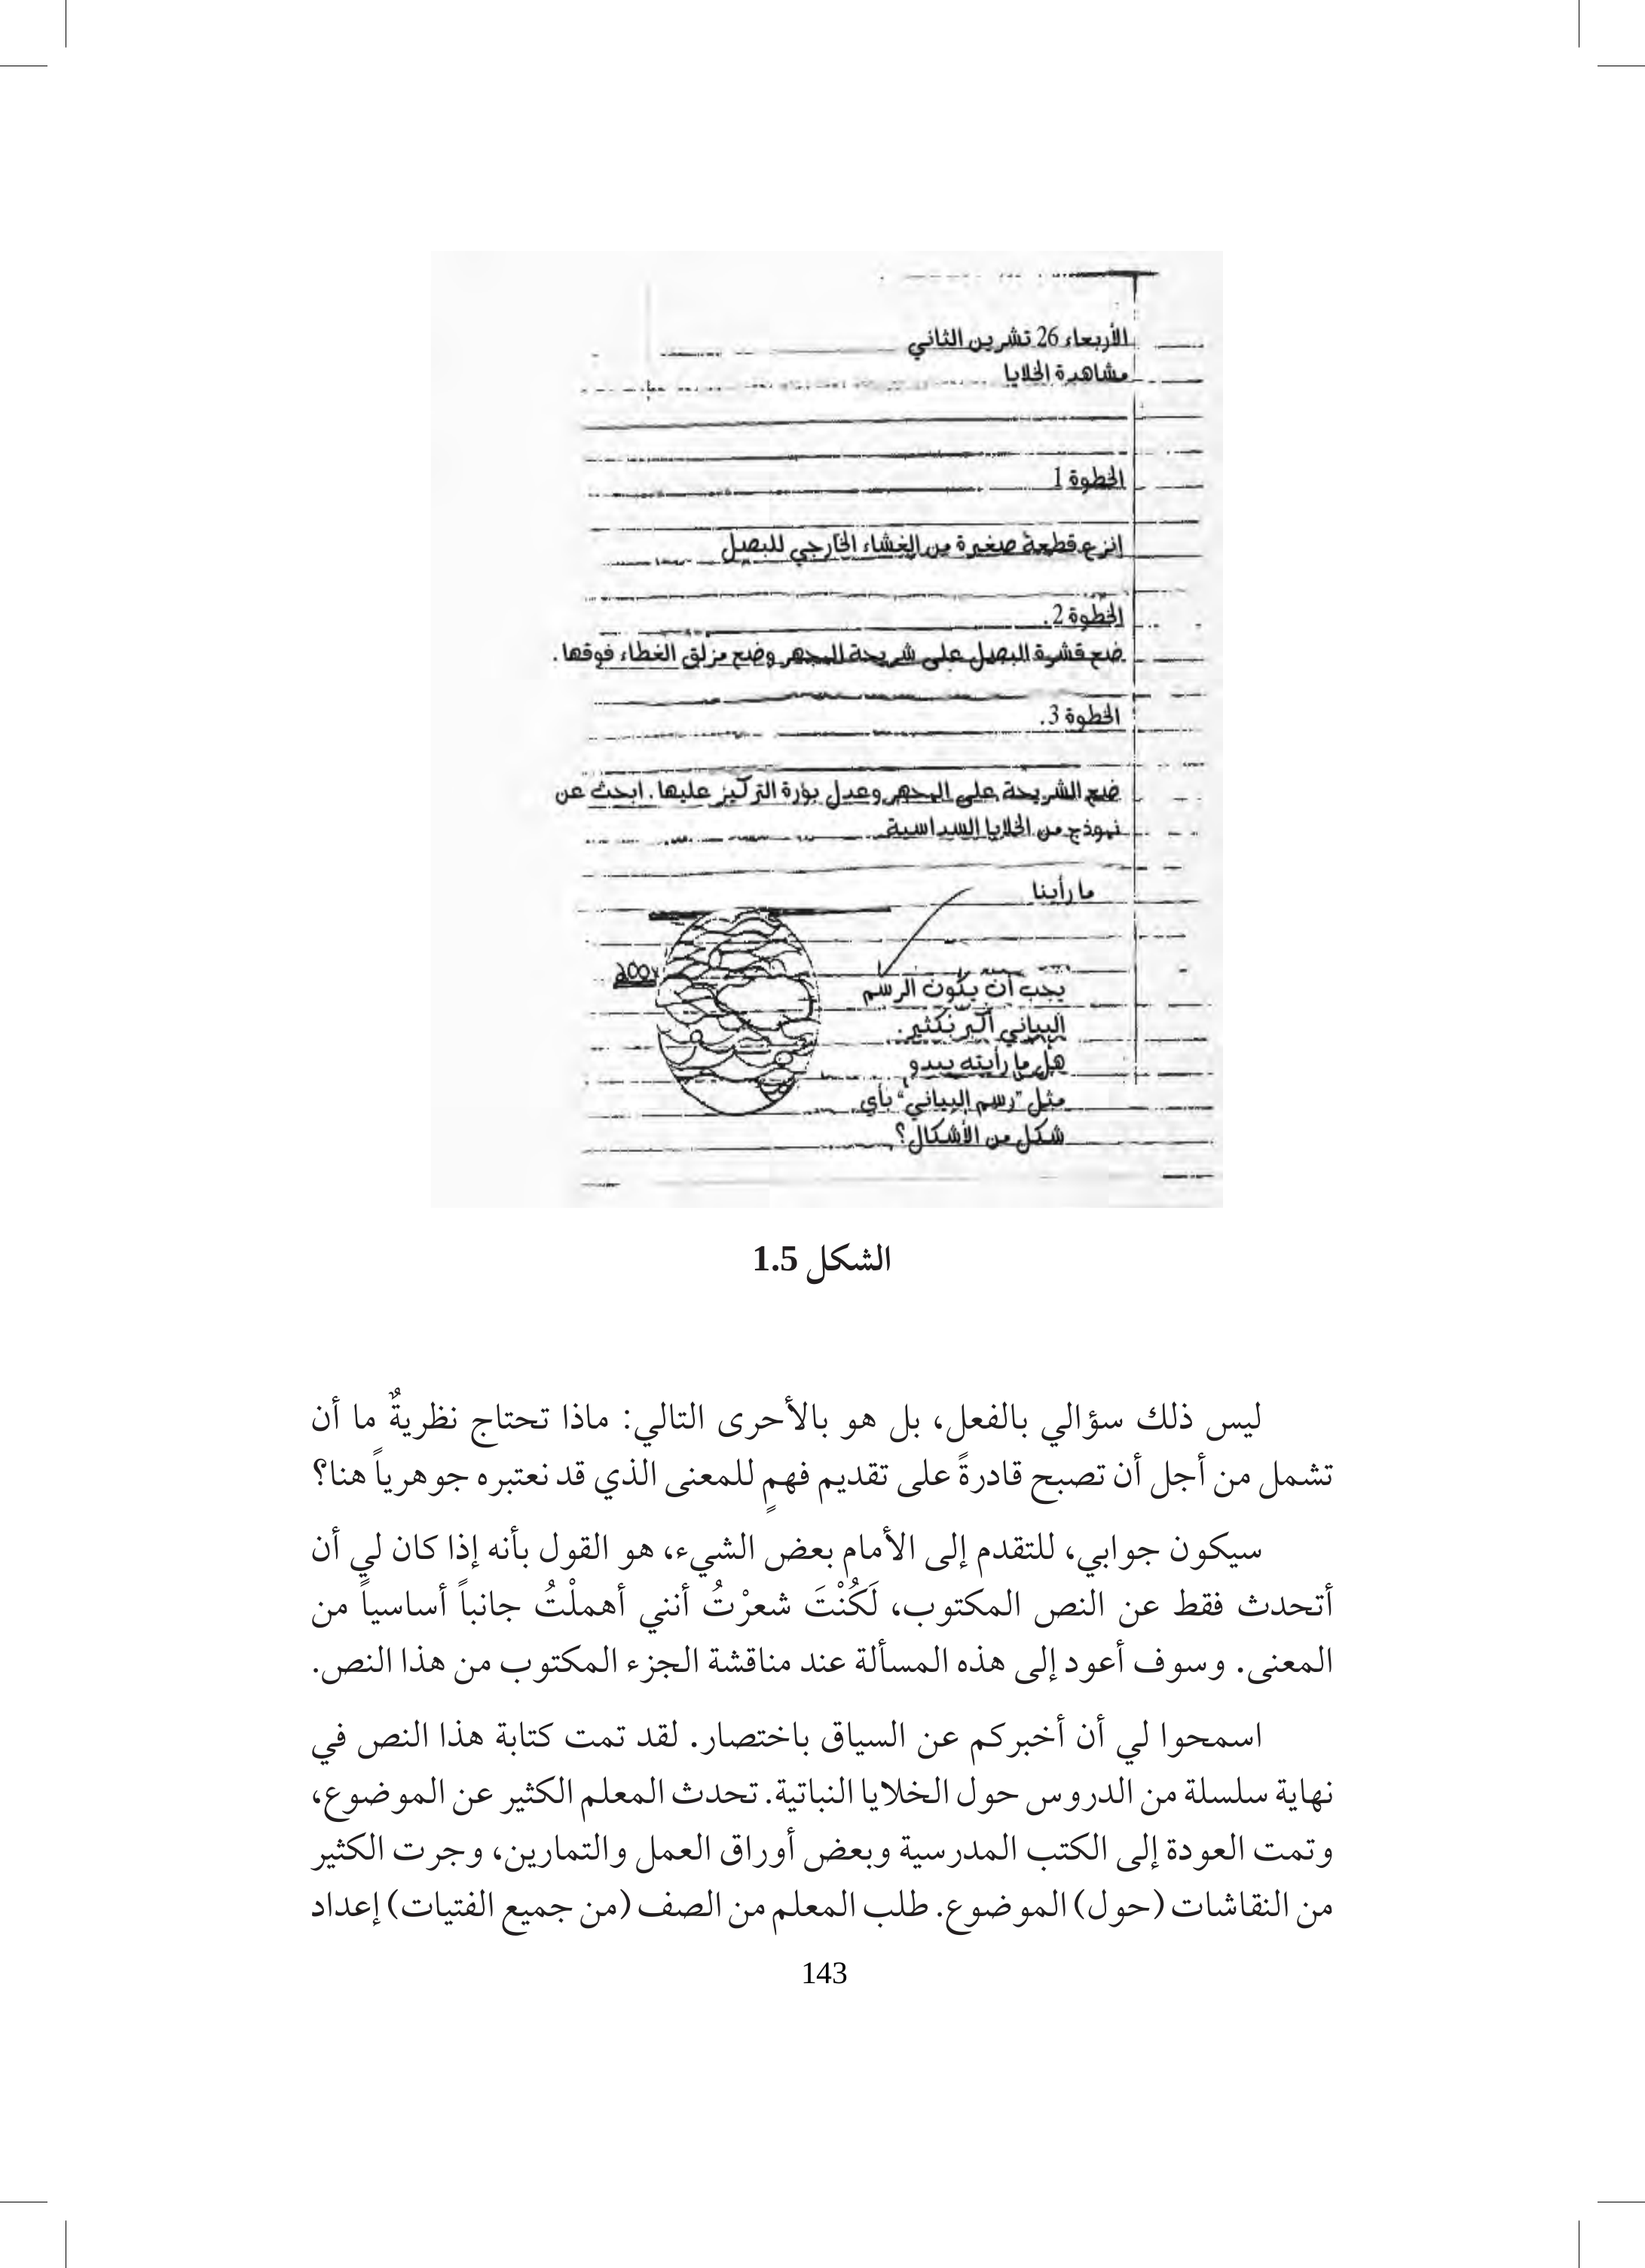 الأربعاء 26 تشرين الثاني
مشاهدة الخلايا
الخطوة 1
انزع قطعة صغيرة من الغشاء الخارجي للبصل
الخطوة 2.
ضع قشرة البصل على شريحة المجهر وضع مزلق الغطاء فوقها.
الخطوة 3.
ضع الشريحة على المجهر وعدل بؤرة التركيز عليها. ابحث عن
نموذج من الخلايا السداسية
ما رأينا
يجب أن يكون الرسم
البياني أكبر بكثير.
هل ما رأيته يبدو
مثل "رسم البياني" بأي
شكل من الأشكال؟
الشكل 1.5
ليس ذلك سؤالي بالفعل، بل هو بالأحرى التالي: ماذا تحتاج نظريةٌ ما أن
تشمل من أجل أن تصبح قادرةً على تقديم فهمٍ للمعنى الذي قد نعتبره جوهرياً هنا؟
سيكون جوابي، للتقدم إلى الأمام بعض الشيء، هو القول بأنه إذا كان لي أن
أتحدث فقط عن النص المكتوب، لَكُنْتَ شعرْتُ أنني أهملْتُ جانباً أساسياً من
المعنى. وسوف أعود إلى هذه المسألة عند مناقشة الجزء المكتوب من هذا النص.
اسمحوا لي أن أخبركم عن السياق باختصار. لقد تمت كتابة هذا النص في
نهاية سلسلة من الدروس حول الخلايا النباتية. تحدث المعلم الكثير عن الموضوع،
وتمت العودة إلى الكتب المدرسية وبعض أوراق العمل والتمارين، وجرت الكثير
من النقاشات (حول) الموضوع. طلب المعلم من الصف (من جميع الفتيات) إعداد
143